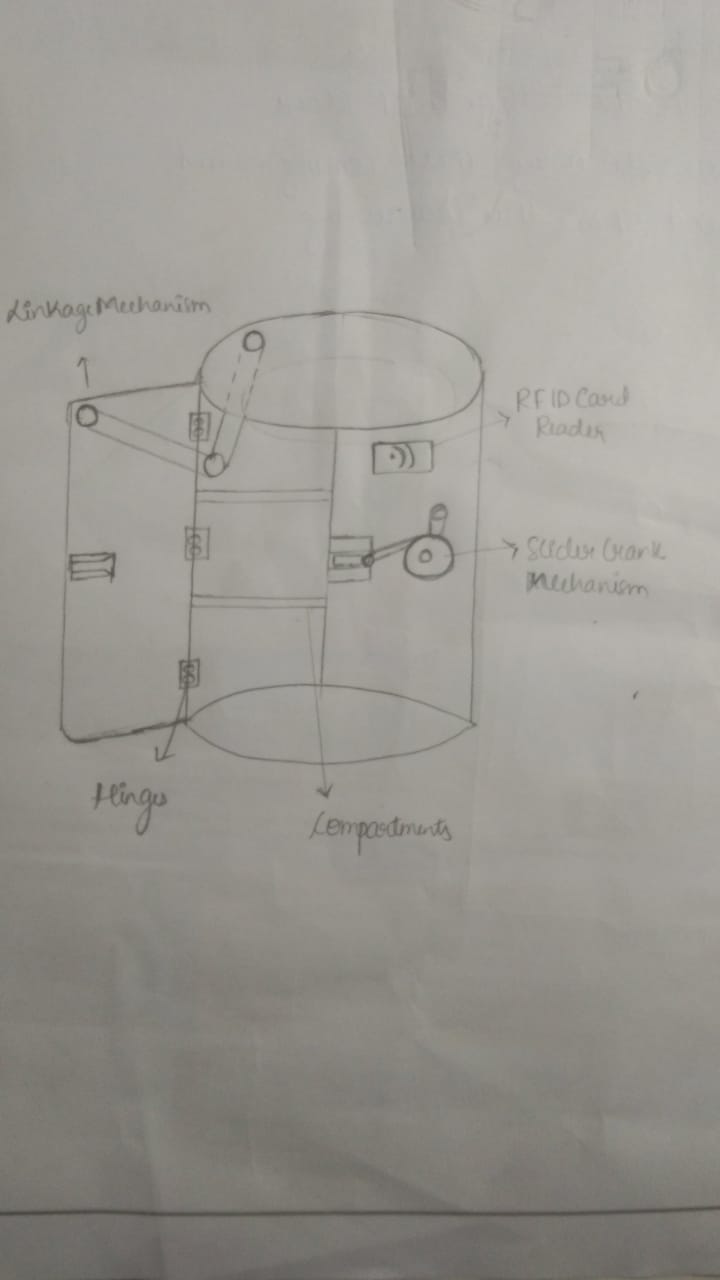 Linkage Mechanism
RFID Card
Reader
Slider Crank
Mechanism
Hinges
Compartments